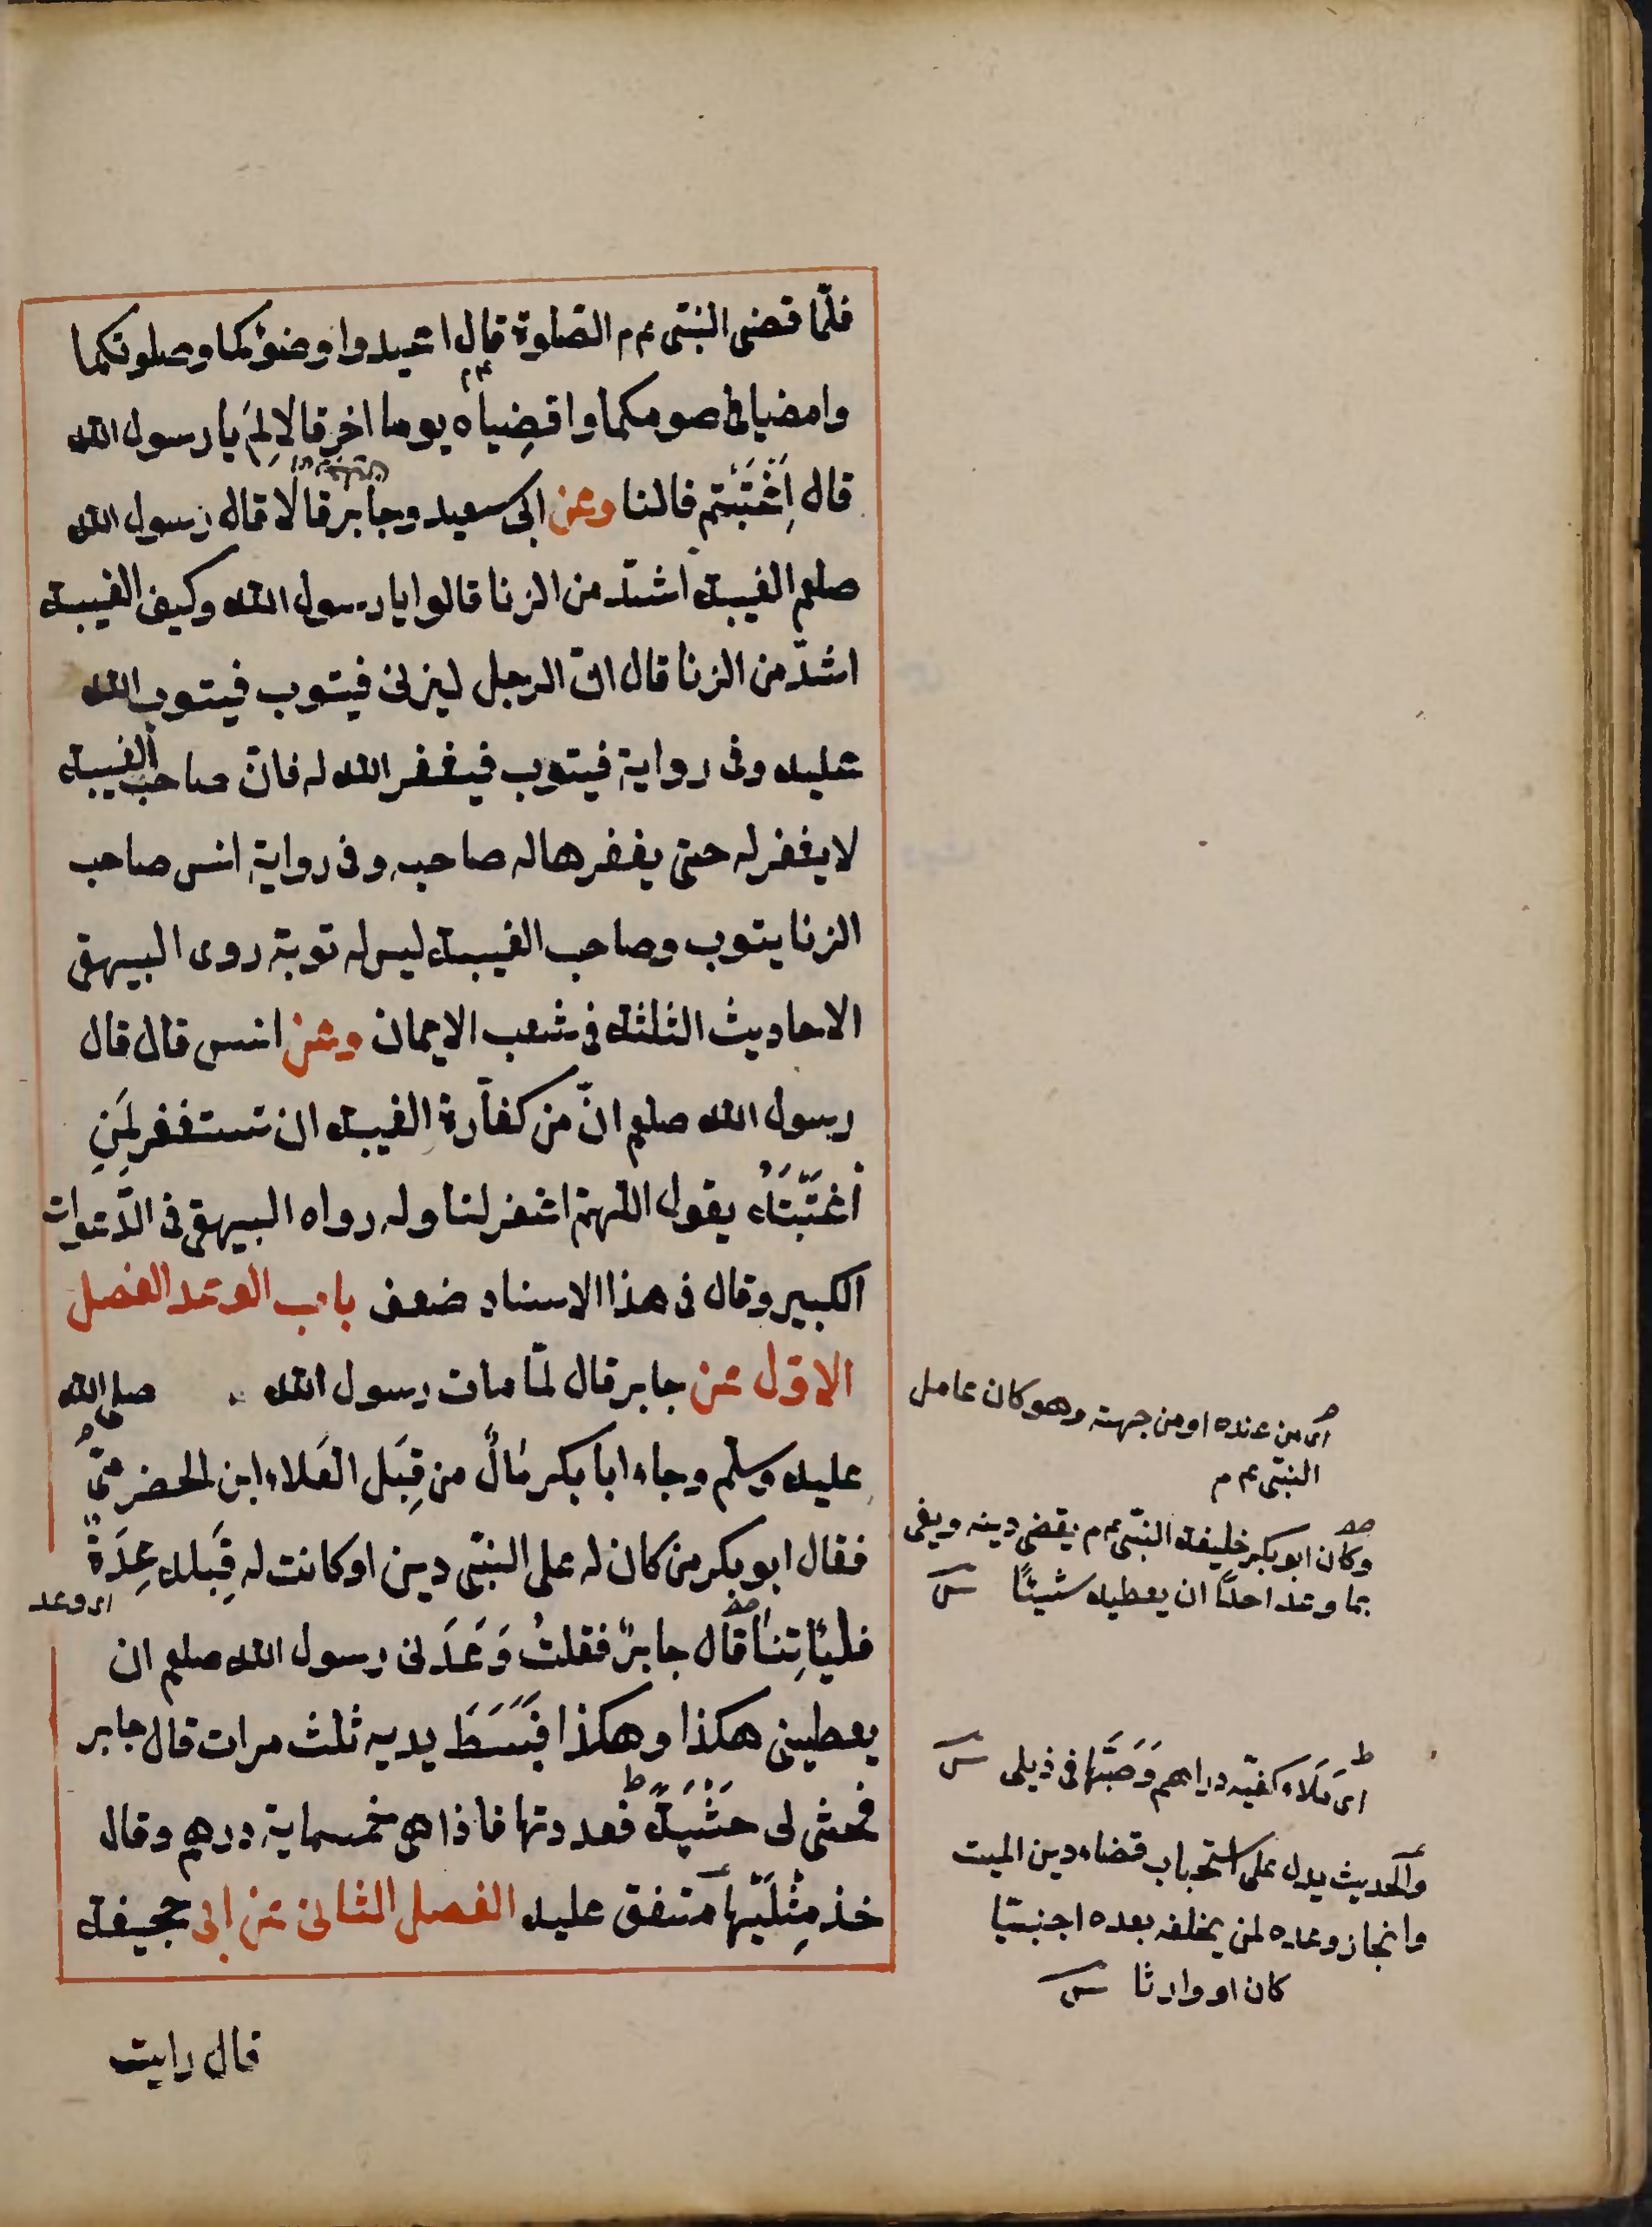 فلمّا قضى النبّى عم م الصّلوة قال اعيدوا وضوئكما وصلوتكما
وامضيا فى صومكما واقضِياه يوما اخر قالا لِمَ يا رسول الله
قال اِغْتَبْتم فالنا وعن ابى سعيد وجابر قالا قال رسول الله
صلعم الغيبة اشدّ من الزنا قالوا يا رسول الله وكيف الغيبة
اشدّ من الزنا قال انّ الرجل ليزنى فيتوب فيتوب الله
عليه وفى رواية فيتوب فيغفر الله له فانّ صاحب الغيبة
لا يغفر له حتى يغفرها له صاحبه وفى رواية انس صاحب
الزنا يتوب وصاحب الغيبة ليس له توبة روى البيهقى
الاحاديث الثلثة فى شعب الايمان وعن انس قال قال
رسول الله صلعم انّ من كفّارة الغيبة ان تستغفر لِمَنِ
اغتَبْتَهُ يقول اللّهمّ اغفر لنا وله رواه البيهقى فى الدّعوات
الكبير وقال فى هذا الاسناد ضعف باب الوعد الفصل
الاوّل عن جابر قال لمّا مات رسول الله صلى الله
عليه وسلّم وجاء ابا بكر مالٌ من قِبَل العَلاء ابن الحضرمىّ
فقال ابو بكر من كان له على النبّى دين او كانت له قِبَله عِدَةٌ
اى وعد
فليأتِنا قال جابرٌ فقلتُ وَعَدَنى رسول الله صلعم ان
يعطينى هكذا وهكذا فبَسَطَ يديه ثلث مرات قال جابر
فحثى لى حَثْيَةً فعددتها فاذا هى خمسماية درهم وقال
خذ مِثْلَيْها متفق عليه الفصل الثانى عن ابى جحيفة
قال رايت
اى من عنده او من جهته وهو كان عامل
النبّى عم م
وكان ابو بكر خليفة النبّى عم م يقضى دينه ويفى
بما وعد احدًا ان يعطيه شيئًا
اى مَلَاء كفيّه دراهم وَصَبَّها فى ذيلى
والحديث يدل على استحباب قضاء دين الميت
وانجاز وعده لمن يخلفه بعده اجنبيّا
كان او وارثا